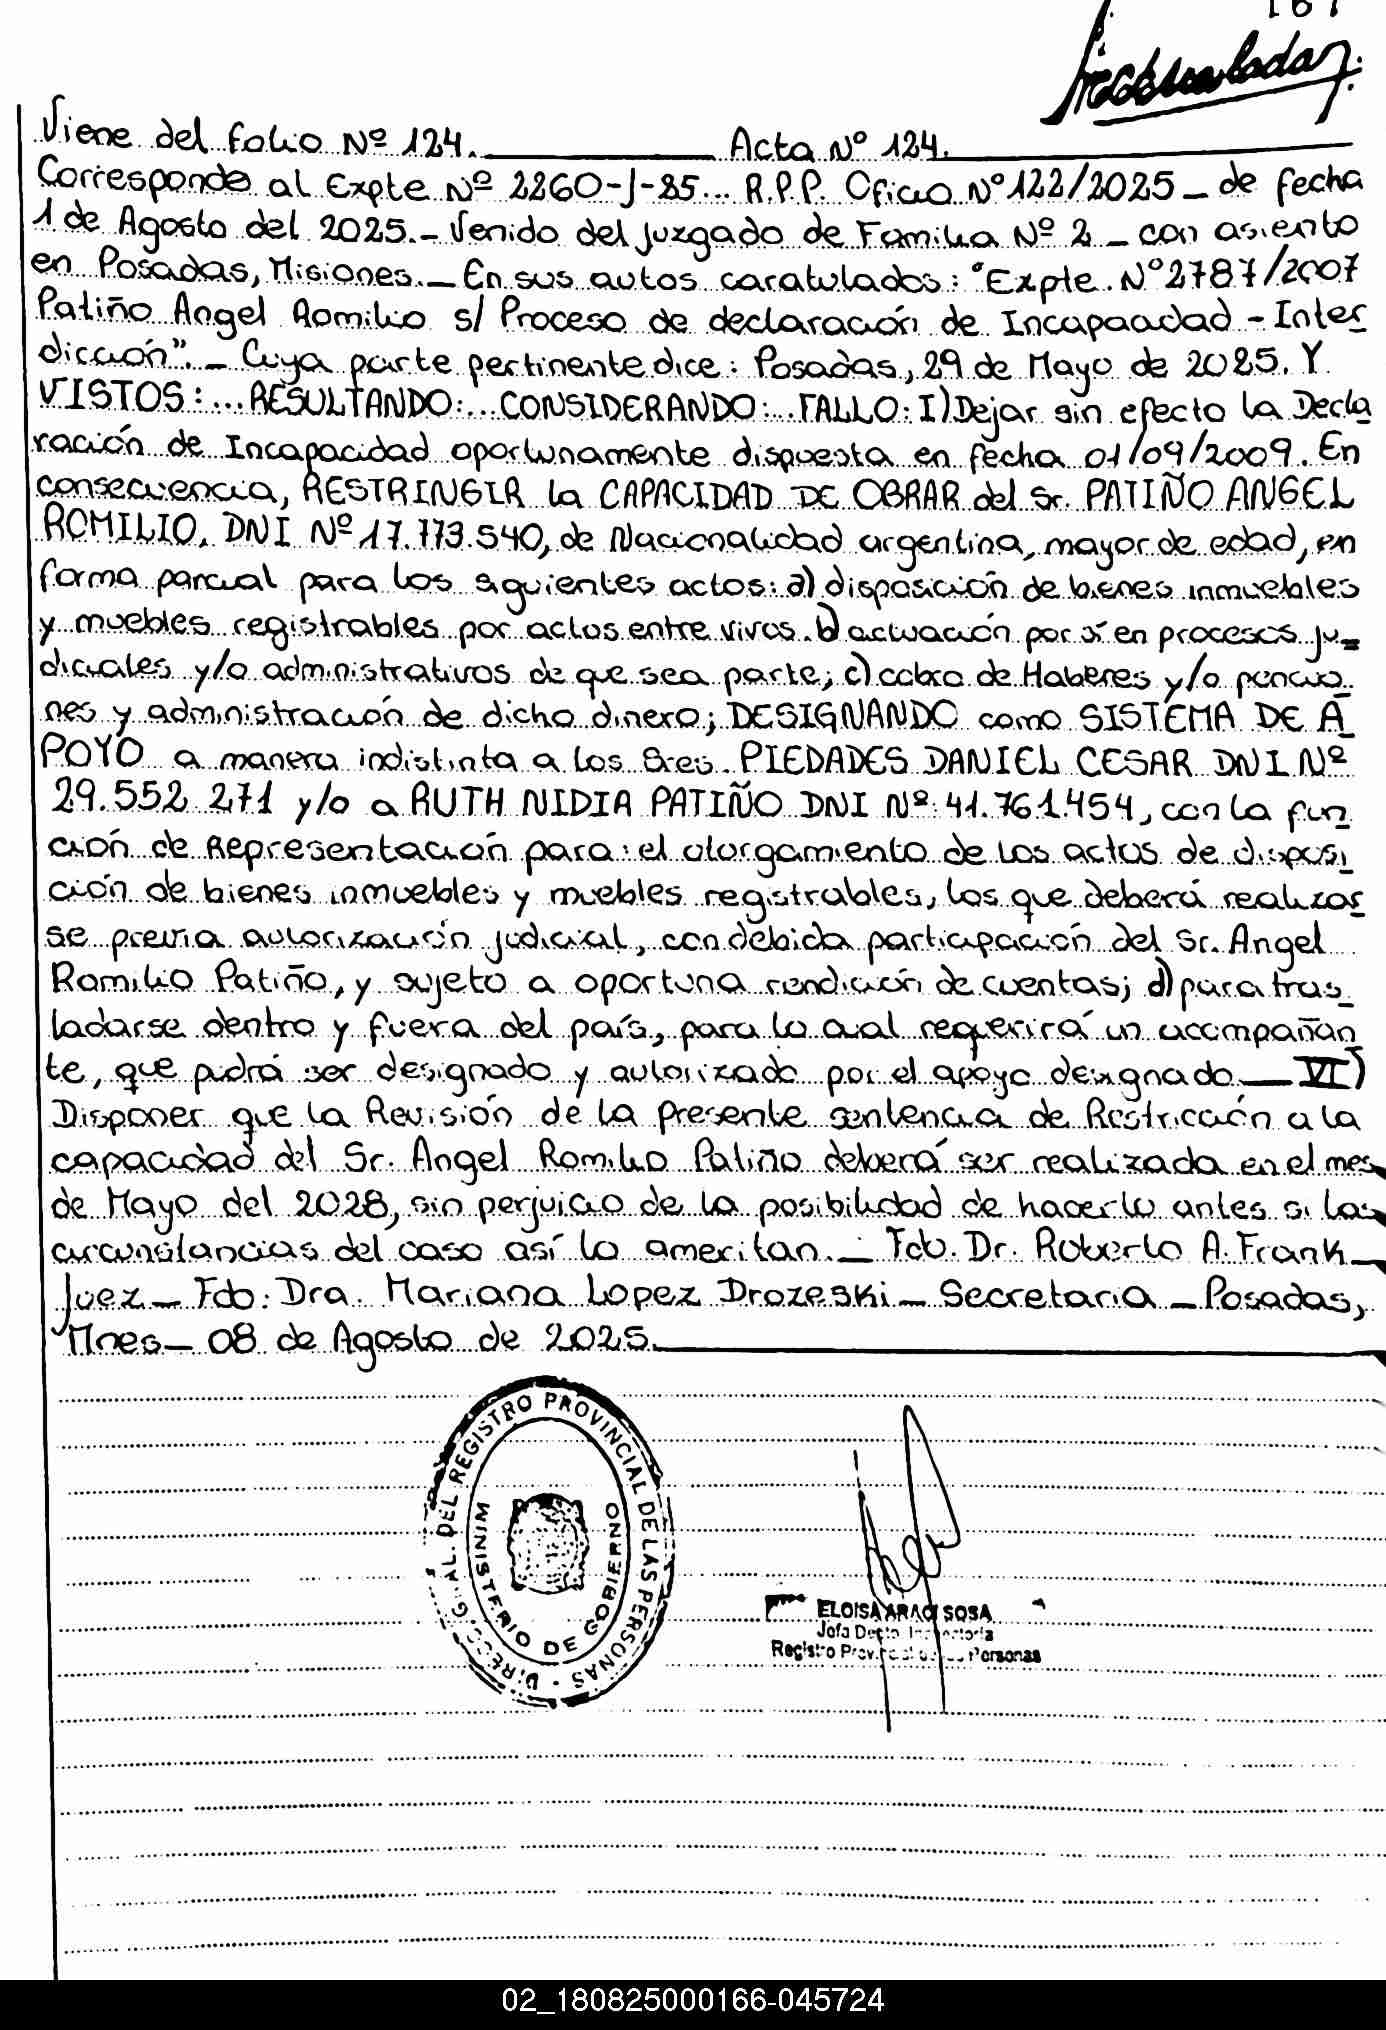 Viene del folio Nº 124. Acta Nº 124.
Corresponde al Expte Nº 2260-J-85... R.P.P. Oficio Nº 122/2025 _ de fecha
1 de Agosto del 2025._ Venido del Juzgado de Familia Nº 2 _ con asiento
en Posadas, Misiones._ En sus autos caratulados: "Expte. Nº 2787/2007
Patiño Angel Romilio s/ Proceso de declaración de Incapacidad - Inter
dicción"._ Cuya parte pertinente dice: Posadas, 29 de Mayo de 2025. Y
VISTOS:...RESULTANDO:...CONSIDERANDO:...FALLO: I) Dejar sin efecto la Decla
ración de Incapacidad oportunamente dispuesta en fecha 01/09/2009. En
consecuencia, RESTRINGIR la CAPACIDAD DE OBRAR del Sr. PATIÑO ANGEL
ROMILIO, DNI Nº 17.773.540, de Nacionalidad argentina, mayor de edad, en
forma parcial para los siguientes actos: a) disposición de bienes inmuebles
y muebles registrables por actos entre vivos. b) actuación por sí en procesos ju=
diciales y/o administrativos de que sea parte; c) cobro de Haberes y/o pencio
nes y administración de dicho dinero; DESIGNANDO como SISTEMA DE A
POYO a manera indistinta a los Sres. PIEDADES DANIEL CESAR DNI Nº
29.552.271 y/o a RUTH NIDIA PATIÑO DNI Nº 41.761.454, con la fun
ción de Representación para: el otorgamiento de los actos de disposi
ción de bienes inmuebles y muebles registrables, los que deberá realizar
se previa autorización judicial, con debida participación del Sr. Angel
Romilio Patiño, y sujeto a oportuna rendición de cuentas; d) para tras
ladarse dentro y fuera del país, para lo cual requerirá un acompañan
te, que podrá ser designado y autorizado por el apoyo designado _ VI)
Disponer que la Revisión de la presente sentencia de Restricción a la
capacidad del Sr. Angel Romilio Patiño deberá ser realizada en el mes
de Mayo del 2028, sin perjuicio de la posibilidad de hacerlo antes si las
circunstancias del caso así lo ameritan._ Fdo. Dr. Roberto A. Frank
Juez _ Fdo: Dra. Mariana Lopez Drozeski _ Secretaria _ Posadas,
Mnes _ 08 de Agosto de 2025.
DIRECC. G AL. DEL REGISTRO PROVINCIAL DE LAS PERSONAS
MINISTERIO DE GOBIERNO
ELOISA ARACI SOSA
Jefa Depto. Inspectoria
Registro Provincial de las Personas
02_180825000166-045724